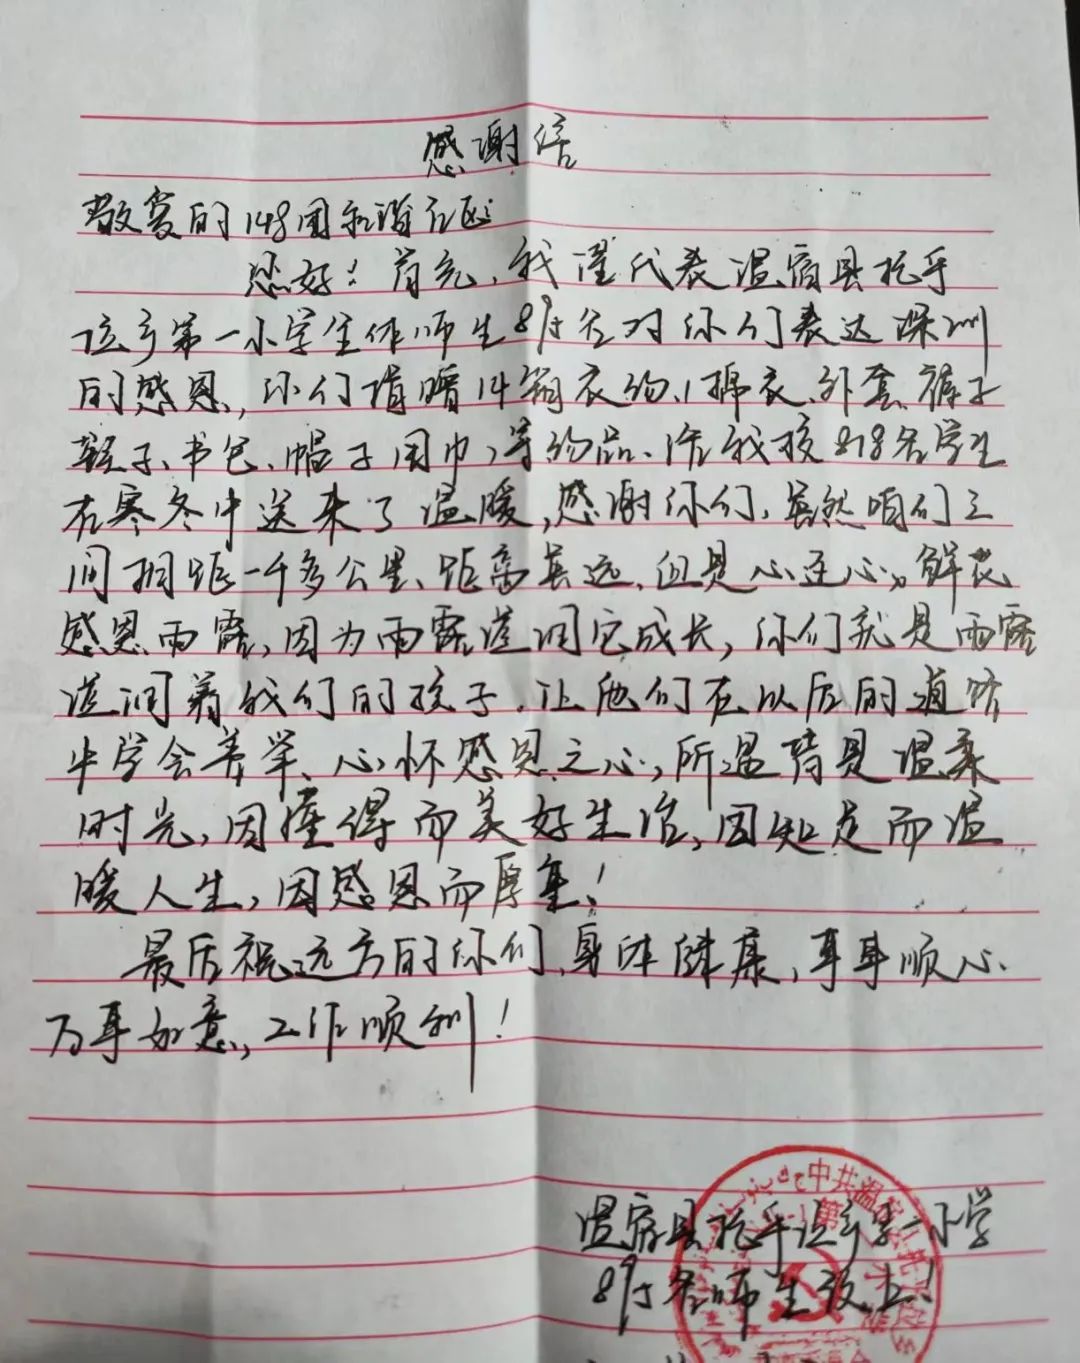 感谢信
敬爱的148团和谐社区:
您好！首先，我谨代表温宿县托乎
拉乡第一小学全体师生895名对你们表达深圳
的感恩，你们捐赠14箱衣物、棉衣、外套、裤子
鞋子、书包、帽子围巾等物品、给我校818名学生
在寒冬中送来了温暖，感谢你们，虽然咱们之
间相距一千多公里、距离甚远，但是心连心，鲜花
感恩雨露，因为雨露滋润它成长，你们就是雨露
滋润着我们的孩子，让他们在以后的道路
中学会善举、心怀感恩之心，所遇皆是温柔
时光，因懂得而美好生活，因知足而温
暖人生，因感恩而厚重！
最后祝远方的你们，身体健康，事事顺心、
万事如意，工作顺利！
温宿县托乎拉乡第一小学
895名师生敬上！
中共温宿县托